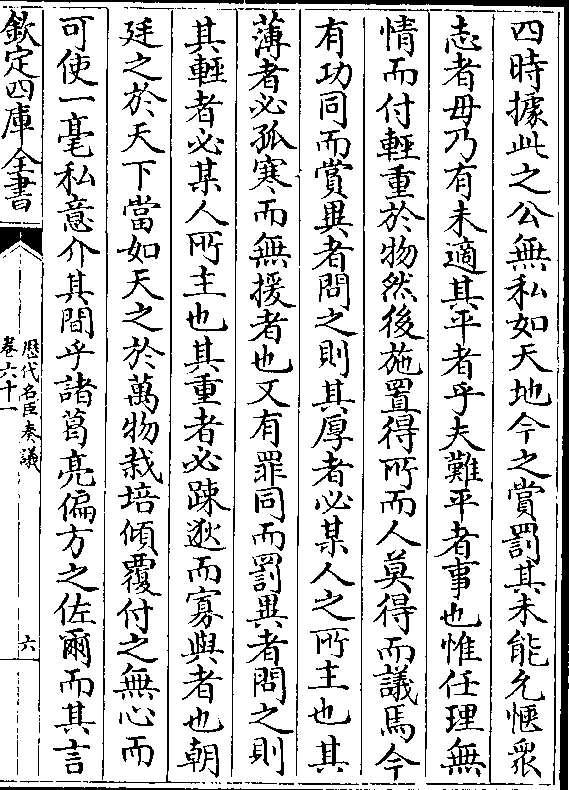 四時據此之公無私如天地今之賞罰其未能允愜衆
志者毋乃有未適其平者乎夫難平者事也惟任理無
情而付輕重於物然後施置得所而人莫得而議焉今
有功同而賞異者問之則其厚者必某人之所主也其
薄者必孤寒而無援者也又有罪同而罰異者問之則
其輕者必某人所主也其重者必踈逖而寡與者也朝
廷之於天下當如天之於萬物栽培傾覆付之無心而
可使一毫私意介其間乎諸葛亮偏方之佐爾而其言
欽定四庫全書
歷代名臣奏議
卷六十一
六